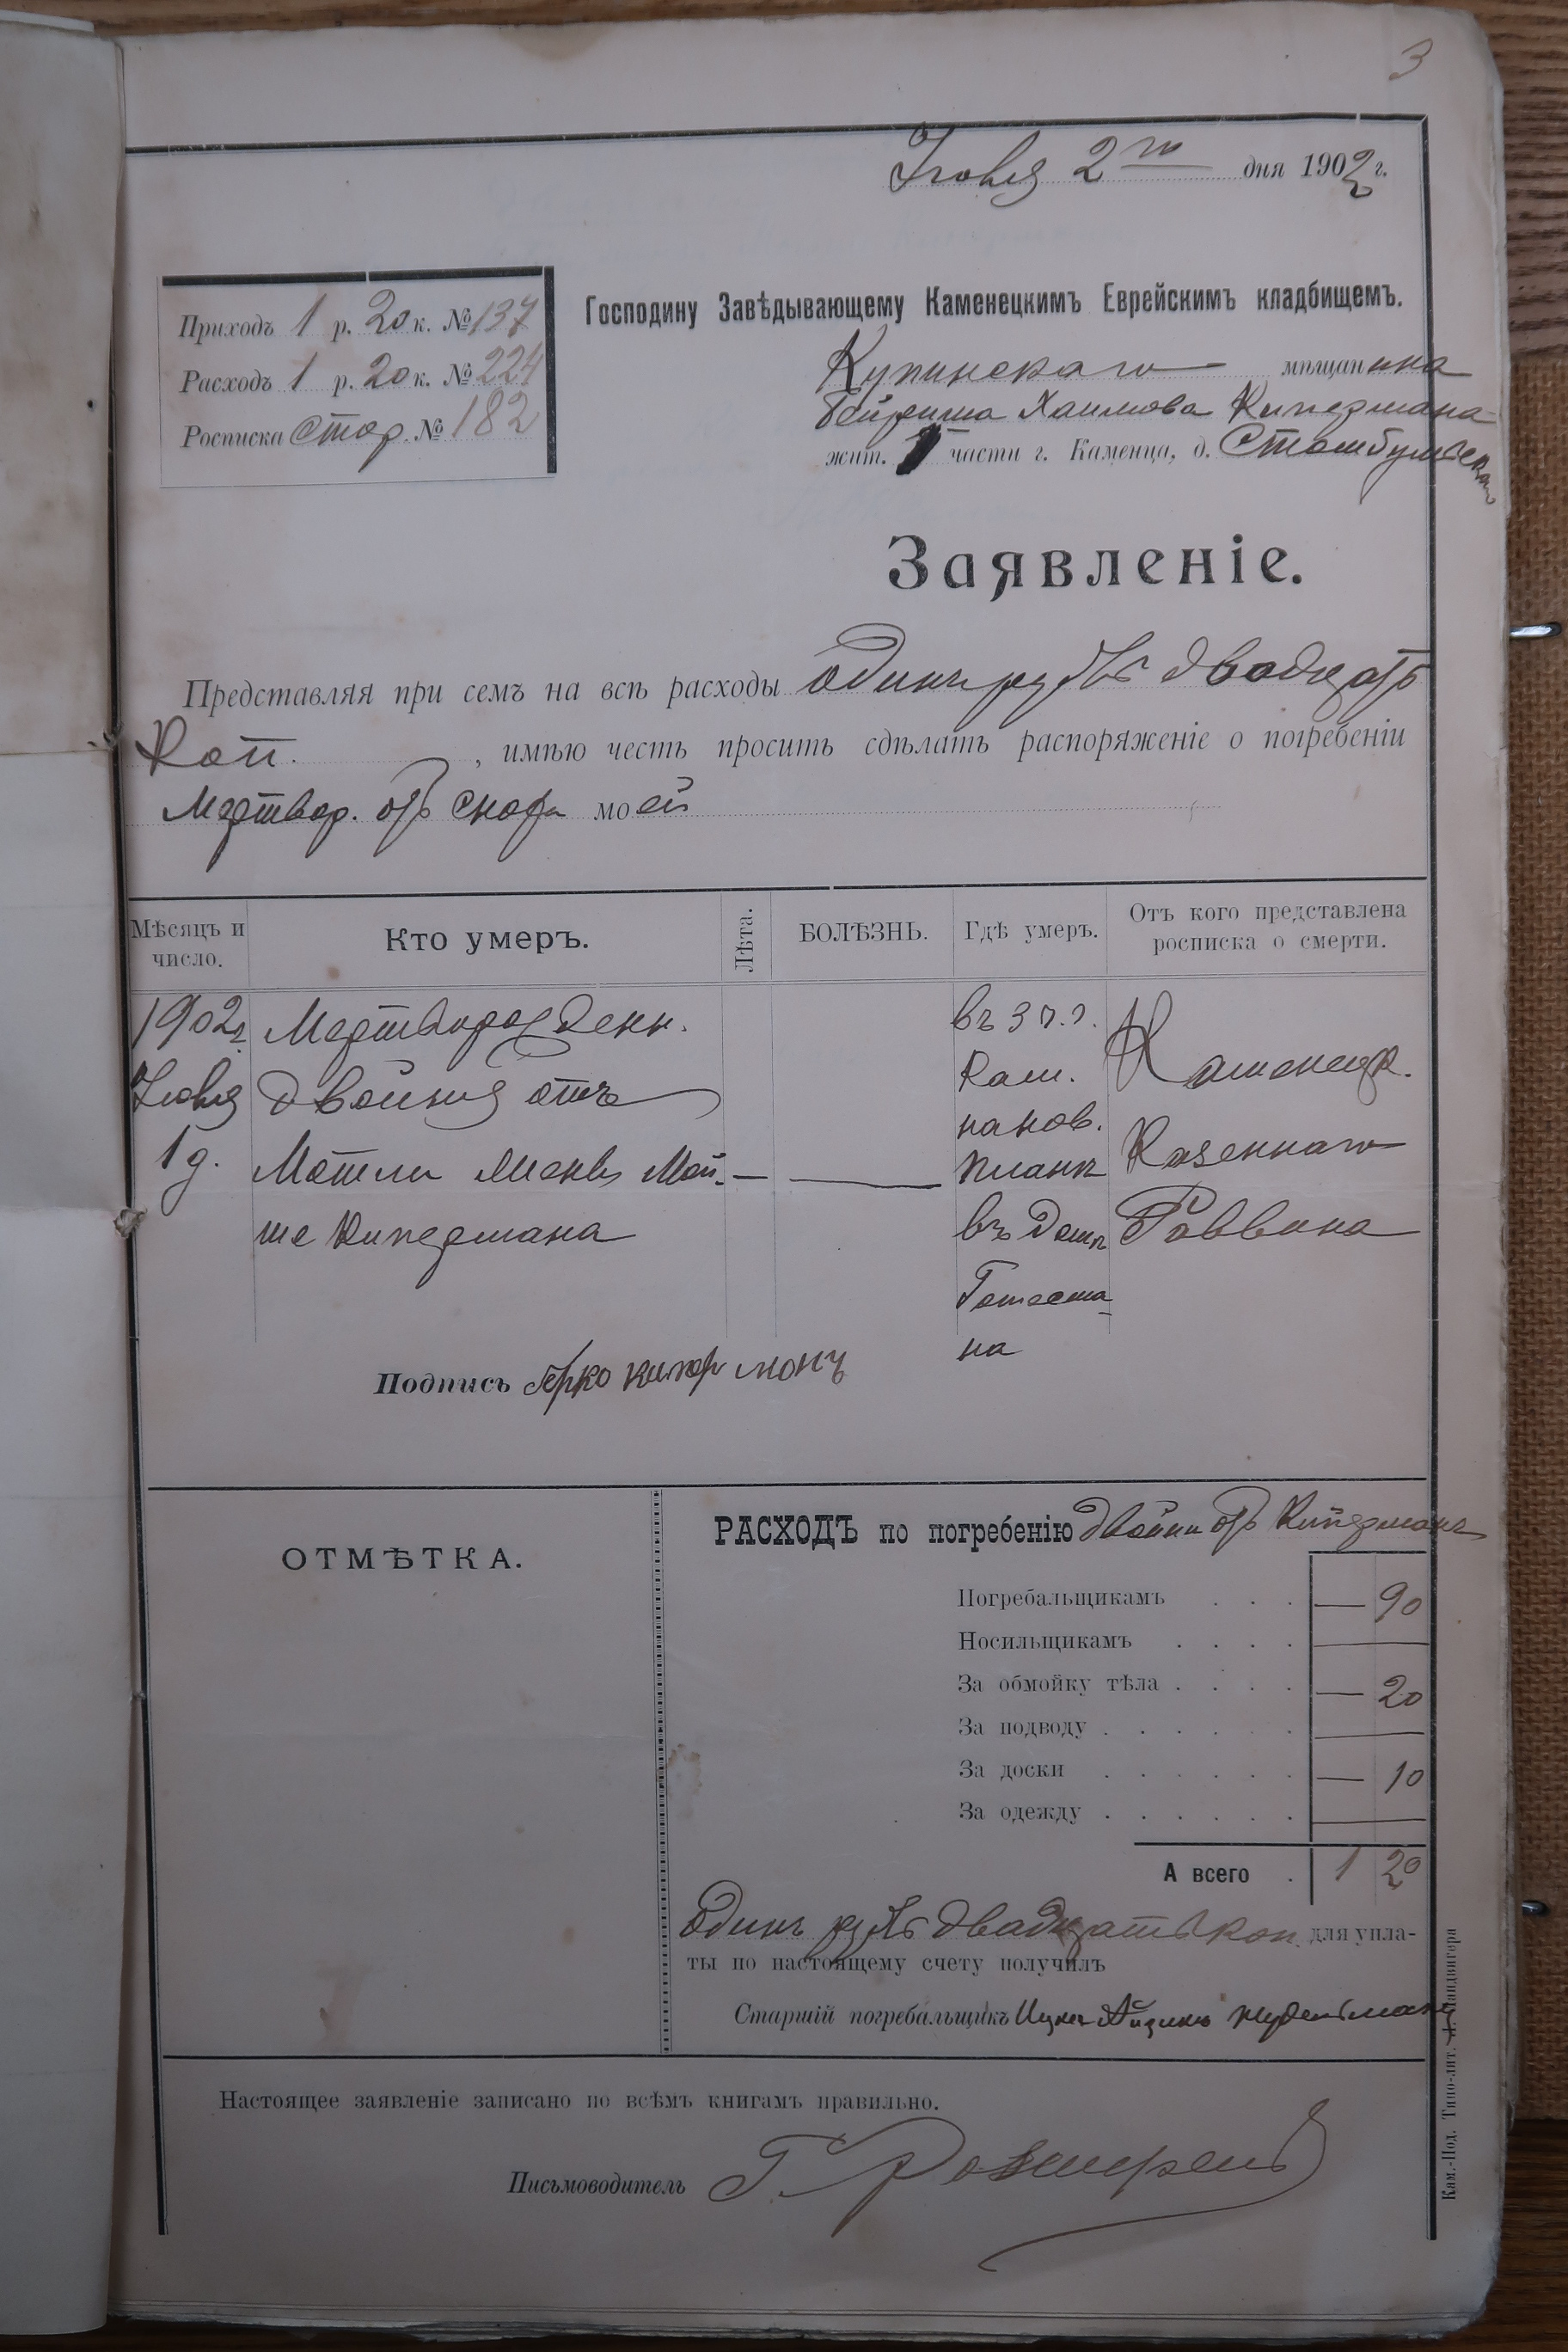 3
Іюля 2го дня 1902 г.
Приходъ 1 р. 20 к. № 137
Расходъ 1 р. 20 к. № 224
Росписка стор. № 182
Господину Завѣдывающему Каменецкимъ Еврейскимъ кладбищемъ.
Купинскаго мѣщанина
Хаимова Кипермана
жит. части г. Каменца, д. Стамбульскаго
Заявленіе.
Представляя при семъ на всѣ расходы одинъ рубль двадцать
Коп. , имѣю честь просить сдѣлать распоряженіе о погребеніи
Мертвор. отъ снохи моей
Мѣсяцъ и число.
Кто умеръ.
Лѣта.
БОЛѢЗНЬ.
Гдѣ умеръ.
Отъ кого представлена росписка о смерти.
1902 г.
Іюля
1 д.
Мертворожденн.
двойня отъ
Мотли жены Мой-
ше Кипермана
— —
въ 3 ч. г.
Кам.
на нов.
планѣ
въ домѣ
на
Каменецк.
Казеннаго
Раввина
Подпись
ОТМѢТКА.
РАСХОДЪ по погребенію двойни отъ Киперманъ
Погребальщикамъ . . . — 90
Носильщикамъ . . . . —
За обмойку тѣла . . . . — 20
За подводу . . . . . . —
За доски . . . . . . — 10
За одежду . . . . . . —
А всего . 1 20
Одинъ рубль двадцать коп. для упла-
ты по настоящему счету получилъ
Старшій погребальщикъ Ицко Айзикъ
Настоящее заявленіе записано по всѣмъ книгамъ правильно.
Письмоводитель Г.
Кам.-Под. Типо-лит.